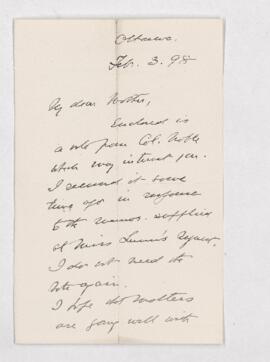 Ottawa.
Feb. 3. 98
My dear Mother,
Enclosed is
a note from Col. Noble
which may interest you.
I received it some
time ago in response
to the
at Miss request.
I do not need the
note again.
I hope that matters
are going well with